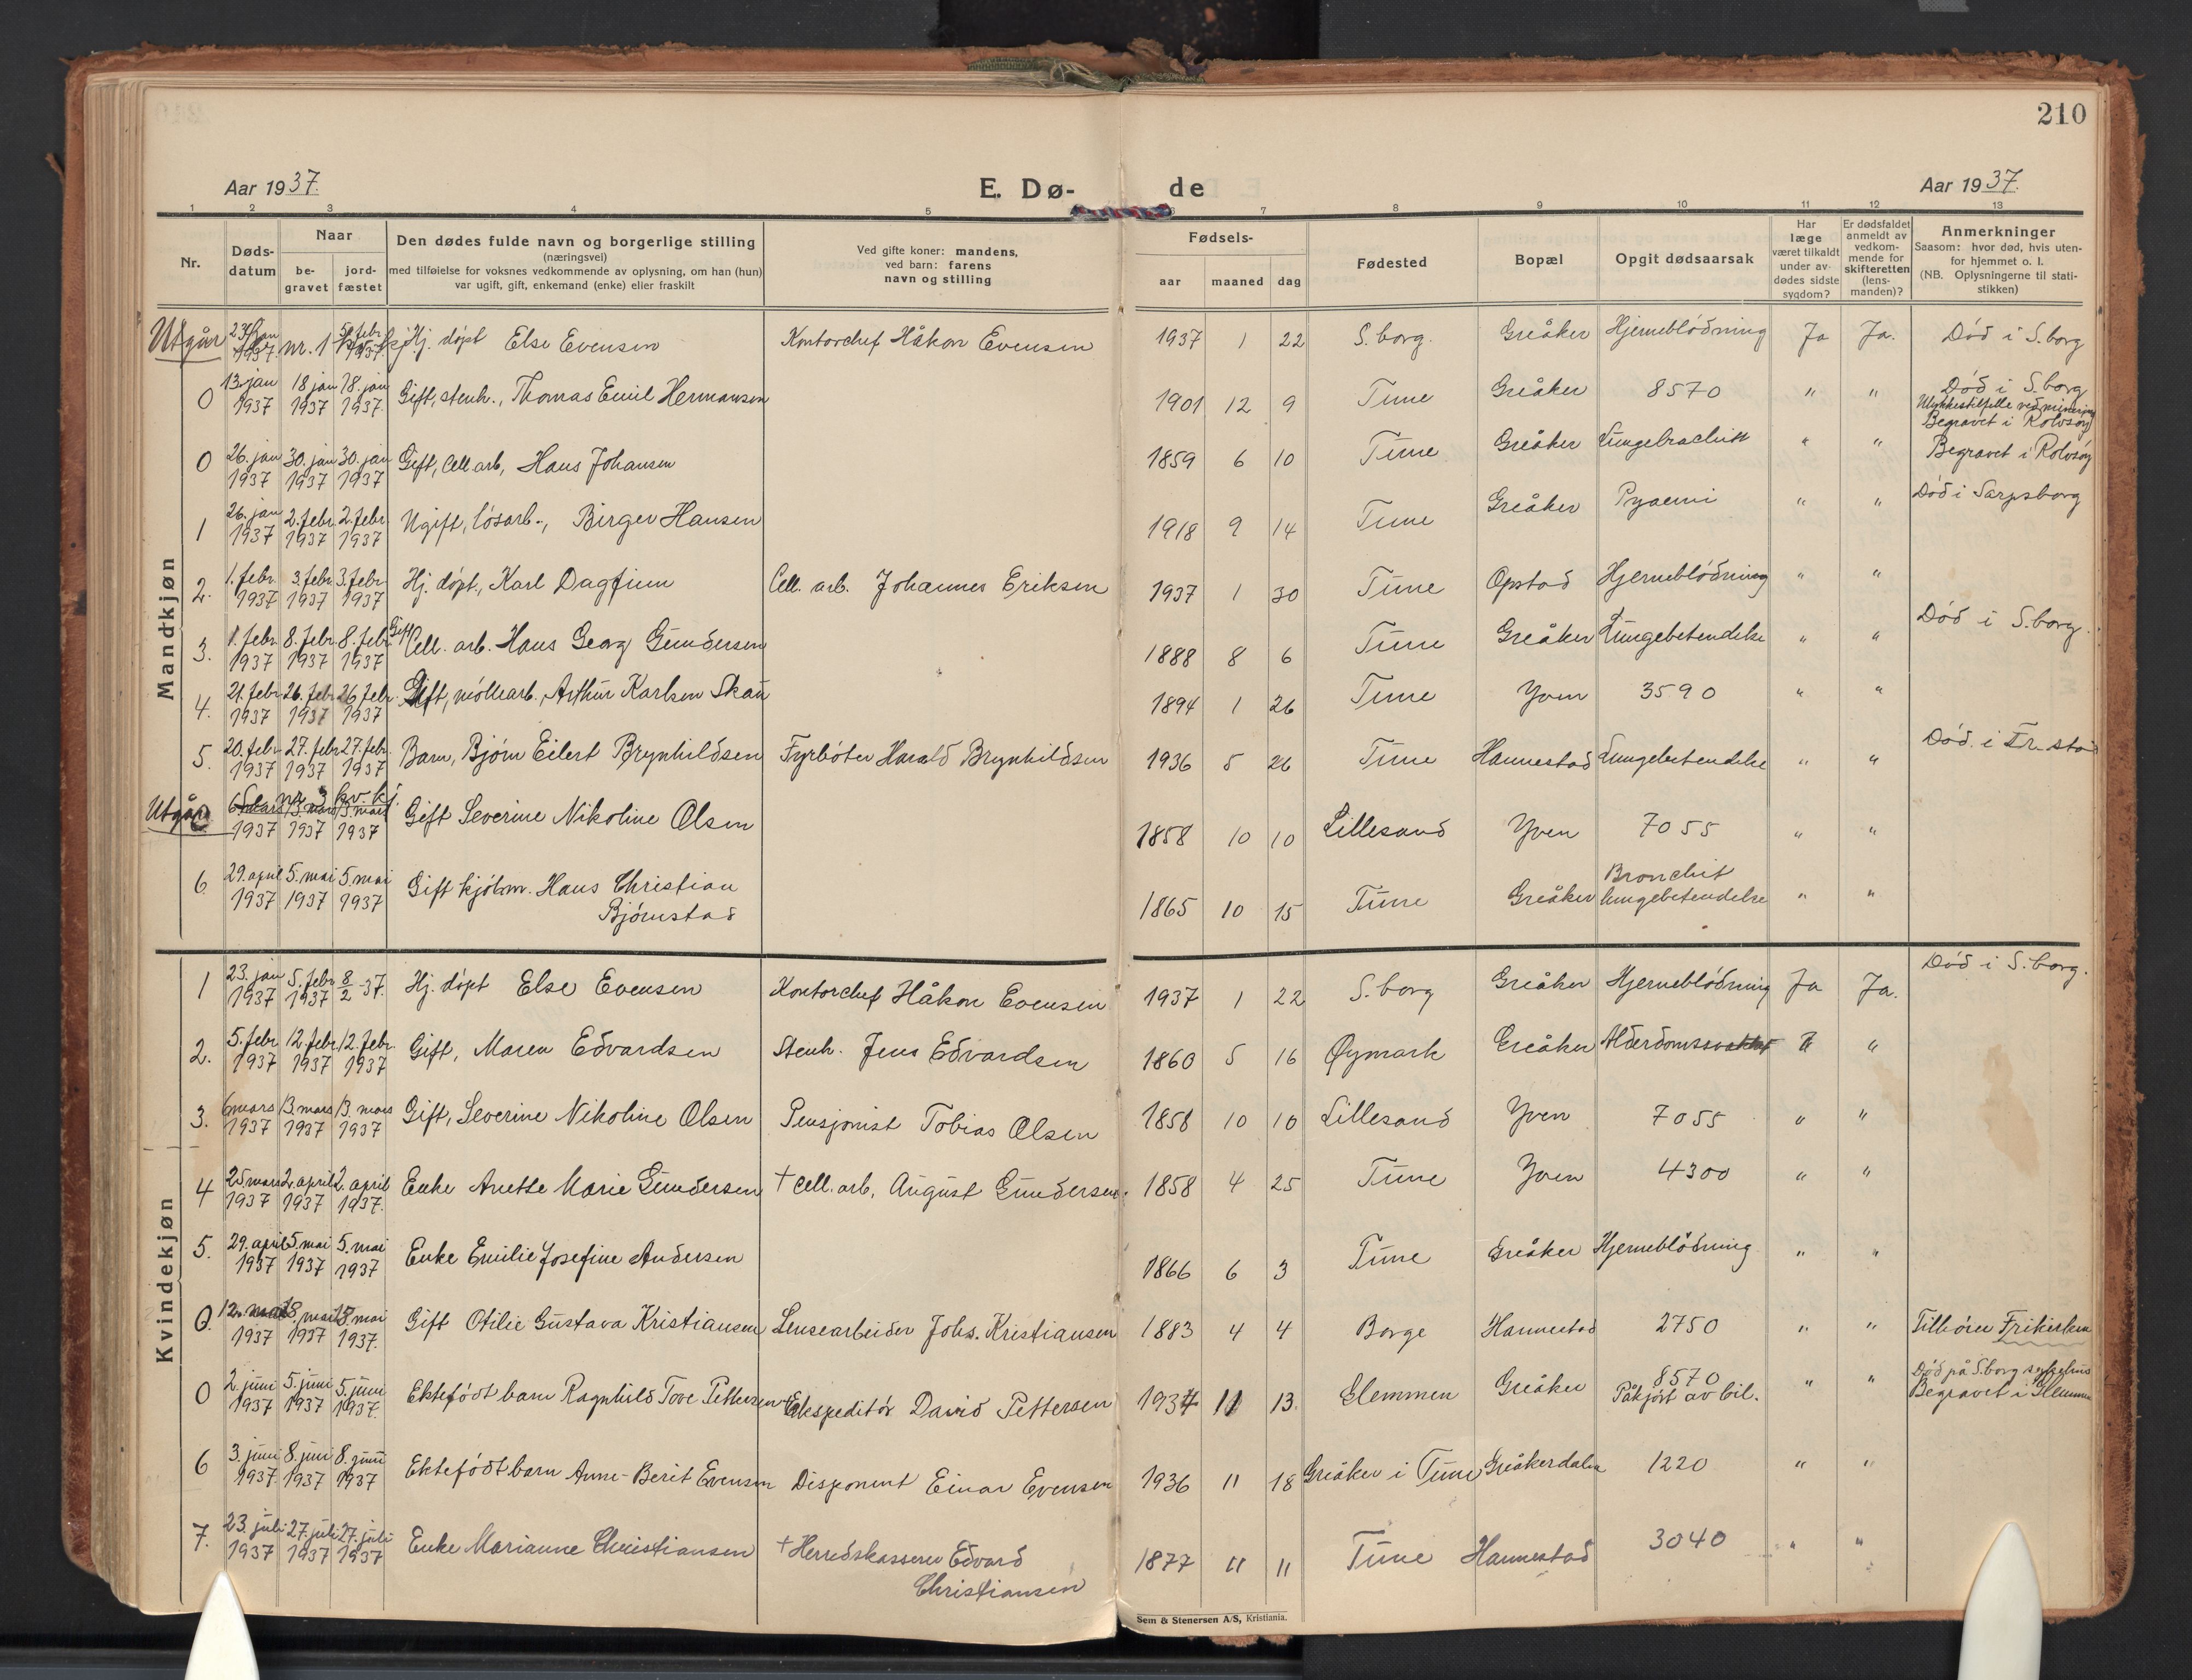 210
Aar 1937.
E. Dø-
de
Aar 1937.
1 2 3 4 5 6 7 8 9 10 11 12 13
Nr.
Døds-
datum
Naar
be-
gravet
jord-
fæstet
Den dødes fulde navn og borgerlige stilling
(næringsvei)
med tilføielse for voksnes vedkommende av oplysning, om han (hun)
var ugift, gift, enkemand (enke) eller fraskilt
Ved gifte koner: mandens,
ved barn: farens
navn og stilling
Fødsels-
aar maaned dag
Fødested
Bopæl
Opgit dødsaarsak
Har
læge
været tilkaldt
under av-
dødes sidste
sygdom?
Er dødsfaldet
anmeldt av
vedkom-
mende for
skifteretten
(lens-
manden)?
Anmerkninger
Saasom: hvor død, hvis uten-
for hjemmet o. l.
(NB. Oplysningerne til stati-
stikken)
Mandkjøn
Utgår 23 jan 1937. nr. 1 5 febr 1937 Hj. døpt Else Evensen Kontorchef Håkon Evensen 1937 1 22 S.borg. Greåker Hjerneblødning Ja Ja. Død i S.borg
0 13. jan 1937 18 jan 1937 18. jan 1937. Gift, stenh., Thomas Emil Hermansen 1901 12 9 Tune Greåker 8570 " " Død i S.borg
Ulykkestilfelle ved minering
Begravet i Rolvsøy
0 26. jan 1937 30. jan 1937 30. jan 1937 Gift, Cell arb, Hans Johansen 1859 6 10 Tune Greåker " " Begravet i Rolvsøy
1 26. jan 1937 2. febr. 1937 2. febr. 1937 Ugift, løsarb., Birger Hansen 1918 9 14 Tune Greåker Pyaemi " " Død i Sarpsborg
2. 1. febr. 1937 3. febr 1937 3. febr. 1937 Hj. døpt, Karl Dagfinn Cell. arb. Johannes Eriksen 1937 1 30 Tune Opstad Hjerneblødning " "
3. 1. febr. 1937 8. febr 1937 8. febr 1937 Gift Cell. arb. Hans Georg Gundersen 1888 8 6 Tune Greåker Lungebetendelse " " Død i S.borg.
4. 21. febr 1937 26. febr 1937 26 febr. 1937 Gift, møllearb., Arthur Karlsen Skau 1894 1 26 Tune Yven 3590 " "
5. 20. febr. 1937 27. febr 1937 27. febr. 1937 Barn, Bjørn Eilert Brynhildsen Fyrbøter Harald Brynhildsen 1936 5 26 Tune Hannestad Lungebetendelse " " Død. i Fr.stad
Utgår Se nr 3 kv. kj.
6 mars 1937 13. mars 1937 13. mars 1937 Gift Severine Nikoline Olsen 1858 10 10 Lillesand Yven 7055 " "
6. 29. april 1937 5. mai 1937 5. mai 1937 Gift kjøbm. Hans Christian
Bjørnstad 1865 10 15 Tune Greåker Bronchit
lungebetendelse " "
Kvindekjøn
1 23. jan 1937 5. febr 1937 8/2 -37. Hj. døpt Else Evensen Kontorchef Håkon Evensen 1937 1 22 S.borg Greåker Hjerneblødning Ja Ja. Død i S.borg.
2. 5. febr 1937 12. febr. 1937 12. febr. 1937 Gift, Maren Edvardsen Stenh. Jens Edvardsen 1860 5 16 Øymark Greåker " "
3. 6 mars 1937 13. mars 1937 13. mars 1937 Gift, Severine Nikoline Olsen Pensjonist Tobias Olsen 1858 10 10 Lillesand Yven 7055 " "
4 25 mars 1937 2. april 1937 2. april 1937. Enke Anette Marie Gundersen † Cell. arb, August Gundersen. 1858 4 25 Tune Yven 4300 " "
5. 29. april 1937 5. mai 1937 5. mai 1937 Enke Emilie Josefine Andersen 1866 6 3 Tune Greåker Hjerneblødning " "
0. 12. mai 1937 18. mai 1937 18. mai 1937. Gift Otilie Gustava Kristiansen Lensearbeider Johs. Kristiansen 1883 4 4 Borge Hannestad 2750 " " Tilhører Frikirken
0 2. juni 1937 5. juni 1937 5. juni 1937. Ektefødt barn Ragnhild Tove Pettersen Ekspeditør David Pettersen 1934 11 13. Glemmen Greåker 8570
Påkjørt av bil. " " Død på S.borg sykehus
Begravet i Glemmen
6 3. juni 1937. 8. juni 1937 8. juni 1937 Ektefødt barn Anne-Berit Evensen Disponent Einar Evensen 1936 11 18 Greåker i Tune Greåkerdalen 1220 " "
7. 23. juli 1937 27. juli 1937 27. juli 1937 Enke Marianne Christiansen † Herredskasserer Edvard
Christiansen 1877 11 11 Tune Hannestad 3040 " "
Sem & Stenersen A/S, Kristiania.